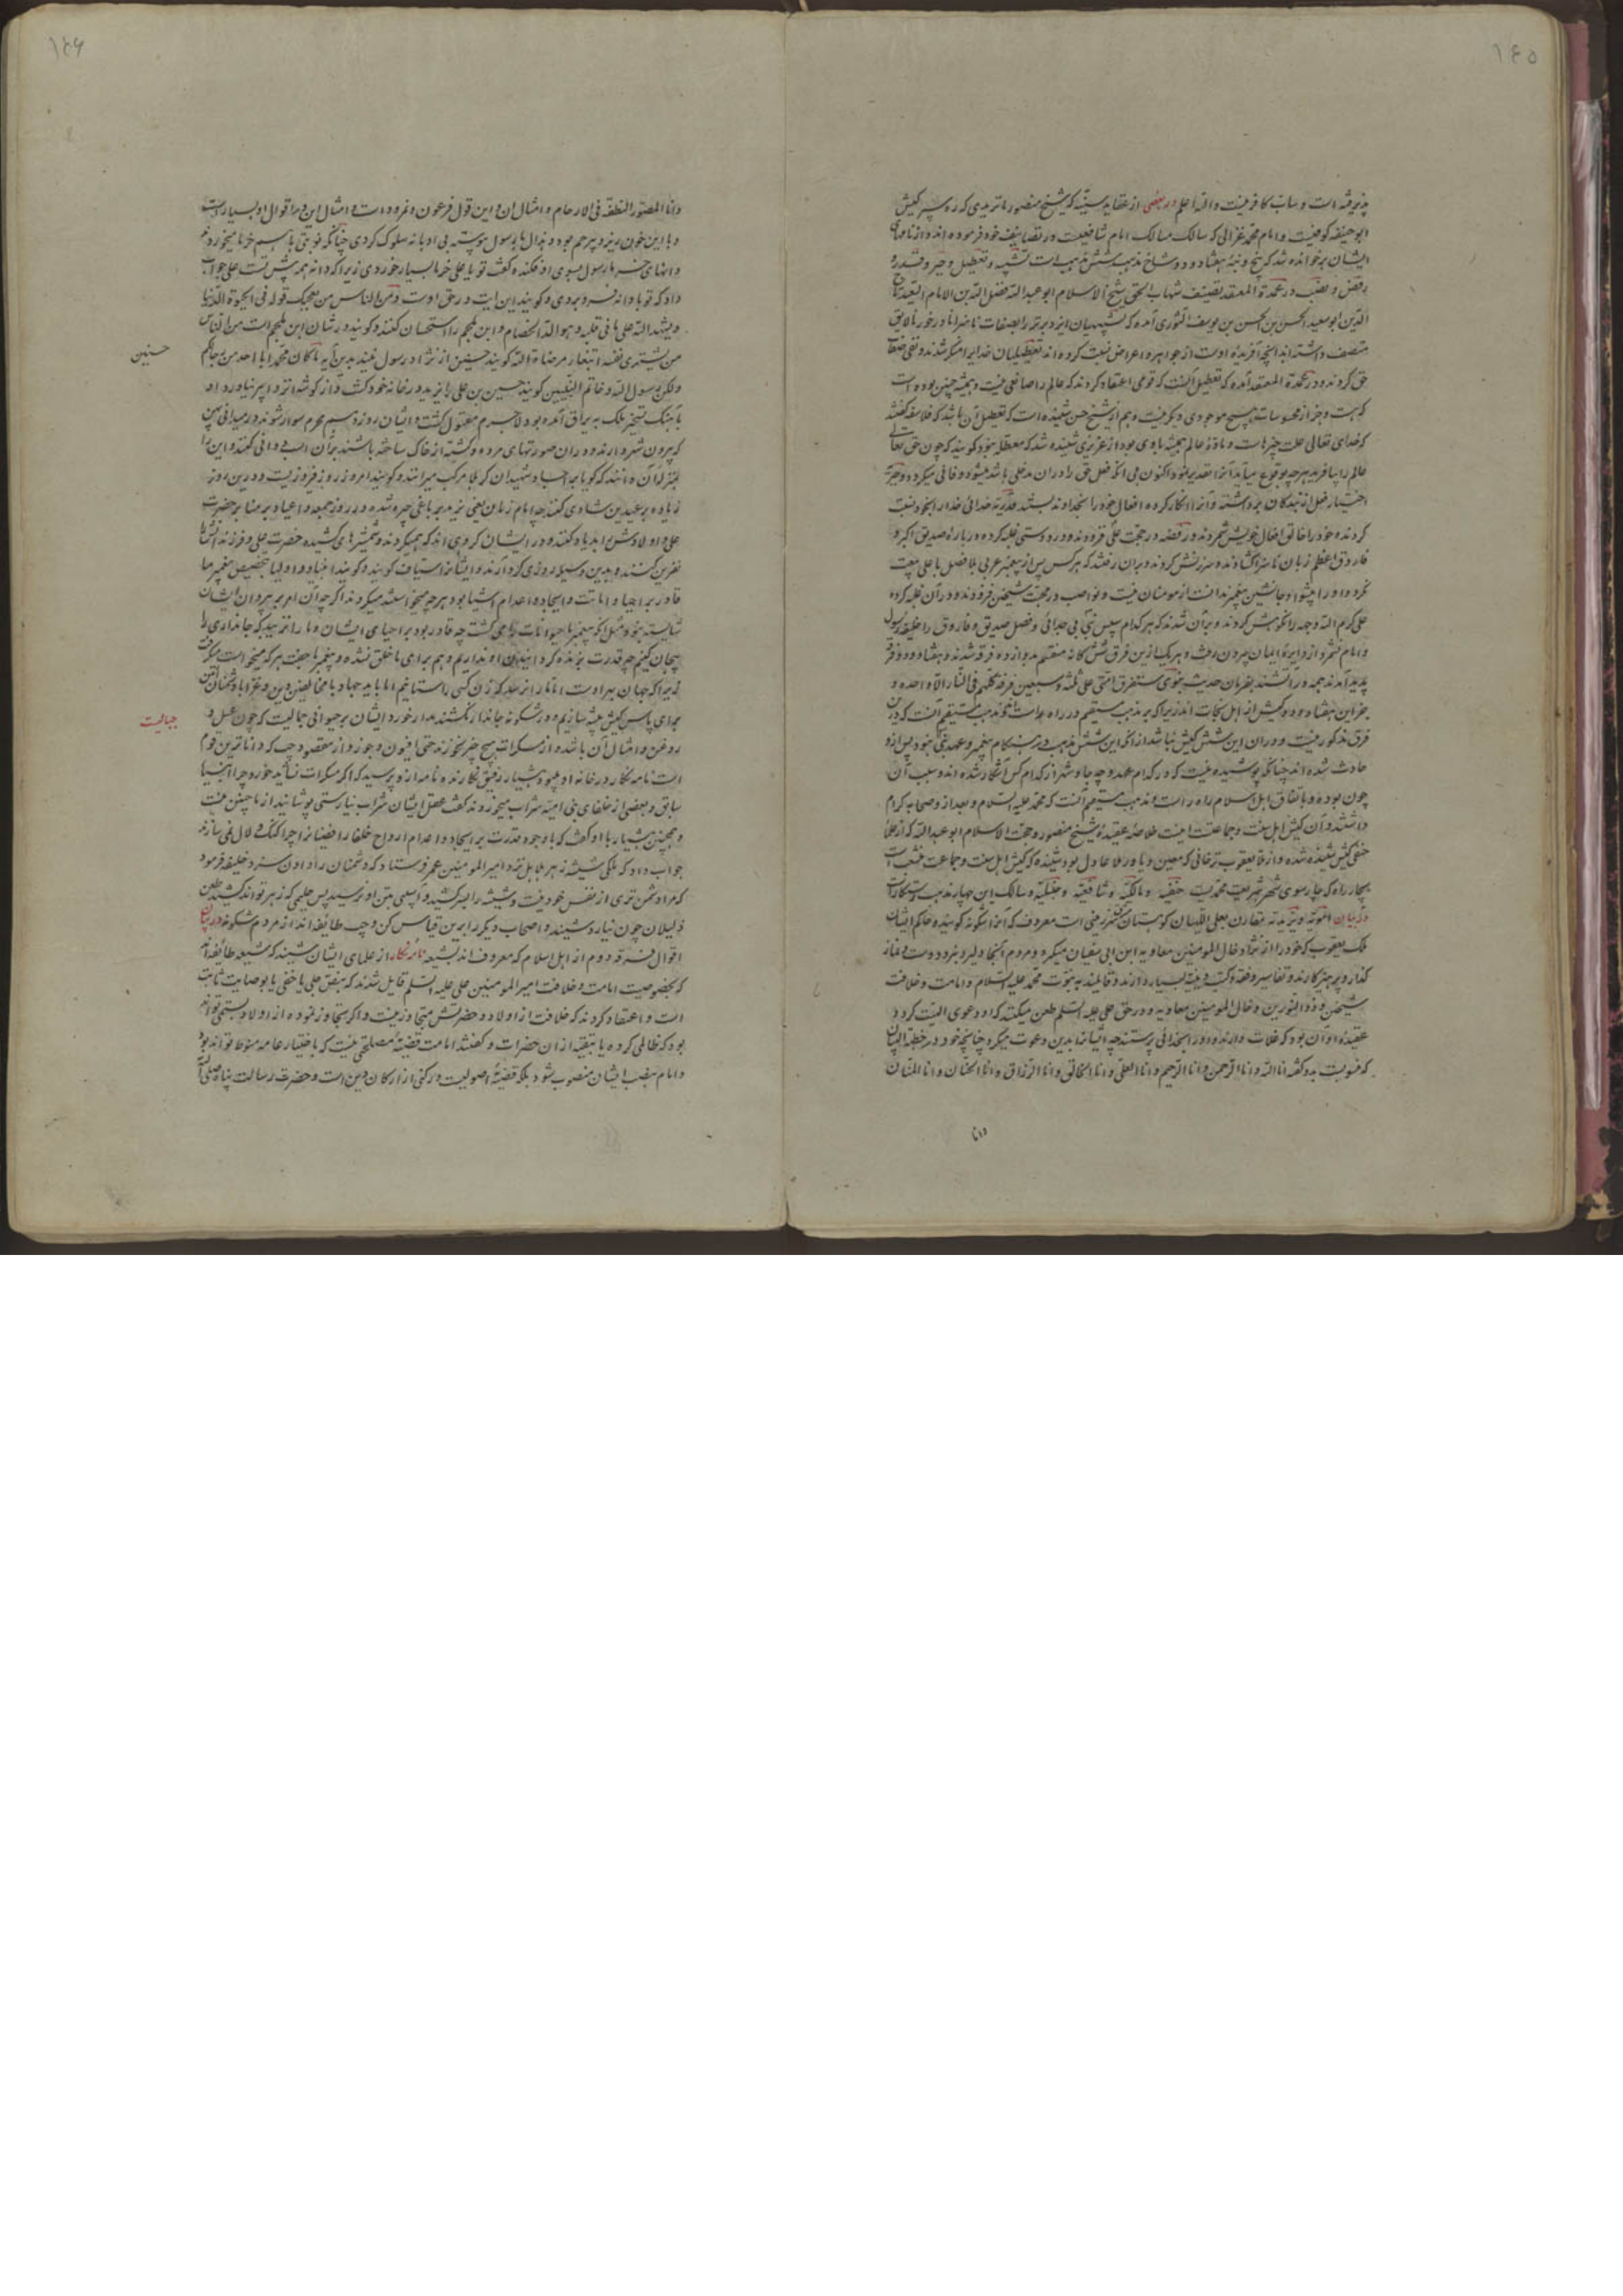 ۱۴۵
پذیرفته است و ساب کافر نیست والله اعلم در بعضی از عقاید سنیه که شیخ منصور ماتریدی که رو سپر کیش
ابوحنیفه کوفیست و امام محمد غزالی که سالک مسالک امام شافعیست در تصانیف خود فرموده اند و از نامهای
ایشان بر خوانده شد که بیخ و بنه هفتاد و دو شاخ مذهب شش مذهب است تشبیه و تعطیل و جبر و قدر و
رفض و نصب در عمدة المعتقد تصنیف شهاب الحق شیخ الاسلام ابو عبدالله فضل الله بن الامام السعید تاج
الدین ابوسعید الحسن بن الحسن بن یوسف التوری آمده که تشبیهیان ایزد برتر را بصفات ناسزا نا درخور نالایق
متصف داشته اند آنچه آفریده اوست از جواهر و اعراض نسبت کرده اند تعطیلیان خدایرا منکر شدند و نفی صفات
حق کردند و در عمدة المعتقد آمده که تعطیل آنست که قومی اعتقاد کردند که عالم را صانعی نیست و همیشه چنین بوده است
که هست و جز از محسوسات هیچ موجودی دیگر نیست و هم از شیخ حسن شنیده است که تعطیل آن باشد که فلاسفه گفتند
که خدای تعالی علت چیزهاست و مادۀ عالم همیشه باوی بود از عزیزی شنیده شد که معطله بنود کویند که چون حق تعالی
عالم را بیافرید هرچه بوقوع میآید آنرا مقدر نمود اکنون بی آنکه فعل حق را در آن مدخلی باشد میشود و فانی میگردد و جبریه
اختیار فعل از بندگان برداشته و آنرا انکار کرده افعال خود را بخداوند بستند قدریه خدائی خدا را بخود نسبت
کردند و خود را خالق افعال خویش شمردند و رفضه در محبت علی فزودند و در دوستی غلبه کرده درباره صدیق اکبر و
فاروق اعظم زبان ناسزا گشادند و سرزنش کردند و بر آن رفتند که هرکس پس از پیغمبر عربی بلا فصل با علی بیعت
نکرد و او را پیشوا و جانشین پیغمبر ندانست از مومنان نیست و نواصب در محبت شیخین فزودند و در آن غلبه کرده
علی کرم الله وجهه را نکوهش کردند و بر آن شدند که هرکدام سپس نبی بی جدائی و فصل صدیق و فاروق را خلیفه رسول
و امام نشمرد از دایرۀ ایمان بیرون رفت و هر یک ازین فرق شش گانه منقسم بدوازده فرقه شدند و هفتاد و دو فرقه
پدید آمدند همه در آتشند بفرمان حدیث نبوی ستفرق امتی علی ثلثة و سبعین فرقة کلهم فی النار الا واحدة و
جز این هفتاد و دو کیش از اهل نجات اند زیرا که بر مذهب مستقیم و راه راست اند و مذهب مستقیم آنست که درین
فرق مذکور نیست و در آن این شش کیش نباشد از آنکه این شش مذهب در هنگام پیغمبر و عهد نبی نبود پس ازو
حادث شده اند چنانکه پوشیده نیست که در کدام عهد و چه جا و شهر از کدام کس آشکار شده اند و سبب آن
چون بوده و باتفاق اهل اسلام راه راست و مذهب مستقیم آنست که محمد علیه السلام و بعد ازو صحابه کرام
داشتند و آن کیش اهل سنت و جماعت است اینست خلاصه عقیدۀ شیخ منصور و حجت الاسلام ابو عبدالله که از علمای
حنفی کیش شنیده شده و از ملا یعقوب ترخانی که معین و یاور ملا عادل بود شنیده که کیش اهل سنت و جماعت منشعب است
بچار راه که چارسوی شهر شریعت محمدیست حنفیه و مالکیه و شافعیه و حنبلیه و سالک این چهار مذهب رستگارست
در بیان امویه و یزیدیه متقارن بعلی اللهیان کوهستان شهرزمینی است معروف که آنرا شکونه کویند و حاکم ایشان
ملک یعقوب که خود را از نژاد خال المومنین معاویه ابن ابی سفیان میگرد و مردم آنجا دلیر و نبرد دوست و نماز
گذار و پرهیزکارند و تفاسیر و فقه و کتب دینیه بسیار دارند و قایلند به نبوت محمد علیه السلام و امامت و خلافت
شیخین و ذوالنورین و خال المومنین معاویه و در حق علی علیه السلم طعن میکنند که او دعوی الهیت کرد و
عقیده او آن بود که غلات دارند و او را بخدائی پرستند چه ایشانرا بدین دعوت میکرد چنانچه خود در خطبة البیان
که منسوبست بدو گفته انا الله و انا الرحمن و انا الرحیم و انا العلی و انا الخالق و انا الرزاق و انا الحنان و انا المنان
وانا
۱۴۶
وانا المصور النطفة فی الارحام و امثال آن و این قول فرعون و نمرود است و امثال این و را قوال او بسیارست
و با این خون ریز و بیرحم بود و هزال ها بوسول پیوسته بی ادبانه سلوک کردی چنانکه نوبتی باهم خرما میخوردند
و انهای خرما رسول بسوی او افکنده گفت تو یا علی خرما بسیار خوردی زیرا که دانه همه پیش تست علی جواب
داد که تو با دانه فرو بردی و کویند این ایت در حق اوست ومن الناس من یعجبک قوله فی الحیوة الدنیا
ویشهد الله علی ما فی قلبه وهو الد الخصام و ابن ملجم را استحسان کنند و کویند در شان ابن ملجم است من الناس
من یشتری نفسه ابتغاء مرضاة الله کویند حسنین از نژاد رسول نیند بدین آیه ما کان محمد ابا احد من رجالکم
ولکن رسول الله وخاتم النبیین کویند حسین بن علی را یزید در خانه خود نکشت و از کوشه انزوا بیرون نیاورد او
باهنگ تسخیر ملک به عراق آمده بود لاجرم مقتول کشت و ایشان روز دهم محرم سوار شوند و در میدانی پهن
که بیرون شهر دارند و در آن صورتهای مرده و کشته از خاک ساخته باشند بر آن اسب دوانی کنند و این را
بمنزلۀ آن دانند که کویا بر اجساد شهیدان کربلا مرکب میرانند و کویند امروز روز فیروزیست و درین روز
زیاده بر عیدین شادی کنند چه امام زمان یعنی یزید بر باغی چیره شده و در روز جمعه و اعیاد بر منابر حضرت
علی و اولادش را بد یاد کنند و در ایشان گروهی اند که میکردند و شمشیرهای کشیده حضرت علی و فرزندانش را
نفرین کنند و بدین وسیله روزی کرد آرند و ایشانرا سیاف کویند و کویند انبیا و اولیا بتخصیص پیغمبر ما
قادر بر احیا و اماتت و ایجاد و اعدام اشیا بود هرچه میخواستند میکردند اگرچه آن امر بر پیروان ایشان
شایسته نبود مثلا اگر پیغمبر ما حیوانات را می کشت چه قادر بود بر احیای ایشان و ما را نزیبد که جانداری را
بیجان کنیم چه قدرت بزنده کردانیدن او نداریم و هم برای ما خلق نشده و پیغمبر ما جفت هر که میخواست میگرفت
زیرا که جهان بهر اوست اما ما را نرسد که زن کسی را ستانیم اما باید جهاد با مخالفین دین و غزا با دشمنان آئین
برای پاس کیش پیشه سازیم و در شکونه جاندار نکشند مدار خورد ایشان بر حیوانی جمالیست که چون عسل و
روغن و امثال آن باشد و از مسکرات هیچ چیز نخورند حتی افیون و جوز و از مقصود چپ که داناترین قوم
است نامه نگار در خانه او بود هشیار رفیق نکارنده نامه ازو پرسید که اگر مسکرات نشاید خورد چرا انبیا
سابق و بعضی از خلفای بنی امیه شراب میخوردند گفت عقل ایشان شراب نیارستی پوشانید از ما چنین نیست
و همچنین هشیار با او گفت که با وجود قدرت بر ایجاد و اعدام ارواح خلفا رافضیانرا چرا کنک و لال نمی سازند
جواب داد که ملکی شیشه زهر هلاهل نزد امیر المومنین عمر فرستاد که دشمنان را دادن سزد خلیفه فرمود
که مرا دشمن تری از نفس خود نیست و شیشه را بسر کشید و آسیبی بتن او نرسید پس حلیمی که زهر تواند کشید طعن
ذلیلان چون نیارد شنیند و اصحاب دیگر را برین قیاس کن و چپ طایفه اند از مردم شکونه در بیان
اقوال فرقه دوم از اهل اسلام که معروف اند بشیعه نامه نگار از علمای ایشان شنید که شیعه طائفه اند
که بخصوصیت امامت و خلافت امیر المومنین علی علیه السلم قایل شدند که بنص جلی یا خفی یا بوصایت ثابت
است و اعتقاد کردند که خلافت از اولاد و حضرتش متجاوز نیست و اگر متجاوز نموده از اولاد بستمی تواند
بود که ظالمی کرده یا بتقیه از آن حضرات و گفتند امامت قضیۀ مصلحتی نیست که باختیار عامه منوط تواند بود
و امام بنصب ایشان منصوب شود بلکه قضیۀ اصولیست و رکنی از ارکان دین است و حضرت رسالت پناه صلی الله
حسنین
جمالیست